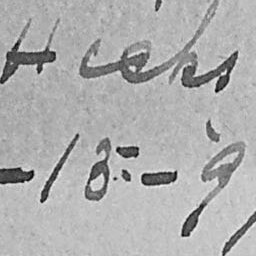 Hicks
-18:-9